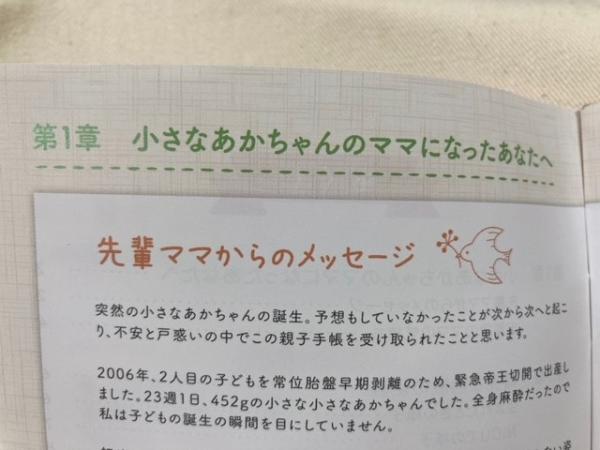 第1章 小さなあかちゃんのママになったあなたへ
先輩ママからのメッセージ
突然の小さなあかちゃんの誕生。予想もしていなかったことが次から次へと起こ
り、不安と戸惑いの中でこの親子手帳を受け取られたことと思います。
2006年、2人目の子どもを常位胎盤早期剥離のため、緊急帝王切開で出産し
ました。23週1日、452gの小さな小さなあかちゃんでした。全身麻酔だったので
私は子どもの誕生の瞬間を目にしていません。